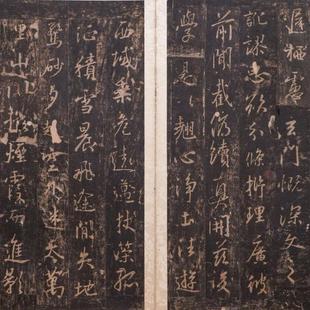 遲栖慮玄門慨深文之
訛謬思欲分條析理廣彼
前聞截偽續真開茲後
學是以翹心淨土法遊
西域乘危遠邁杖策孤
征積雪晨飛途間失地
驚砂夕起空外迷天萬
里山川撥煙霞而進影